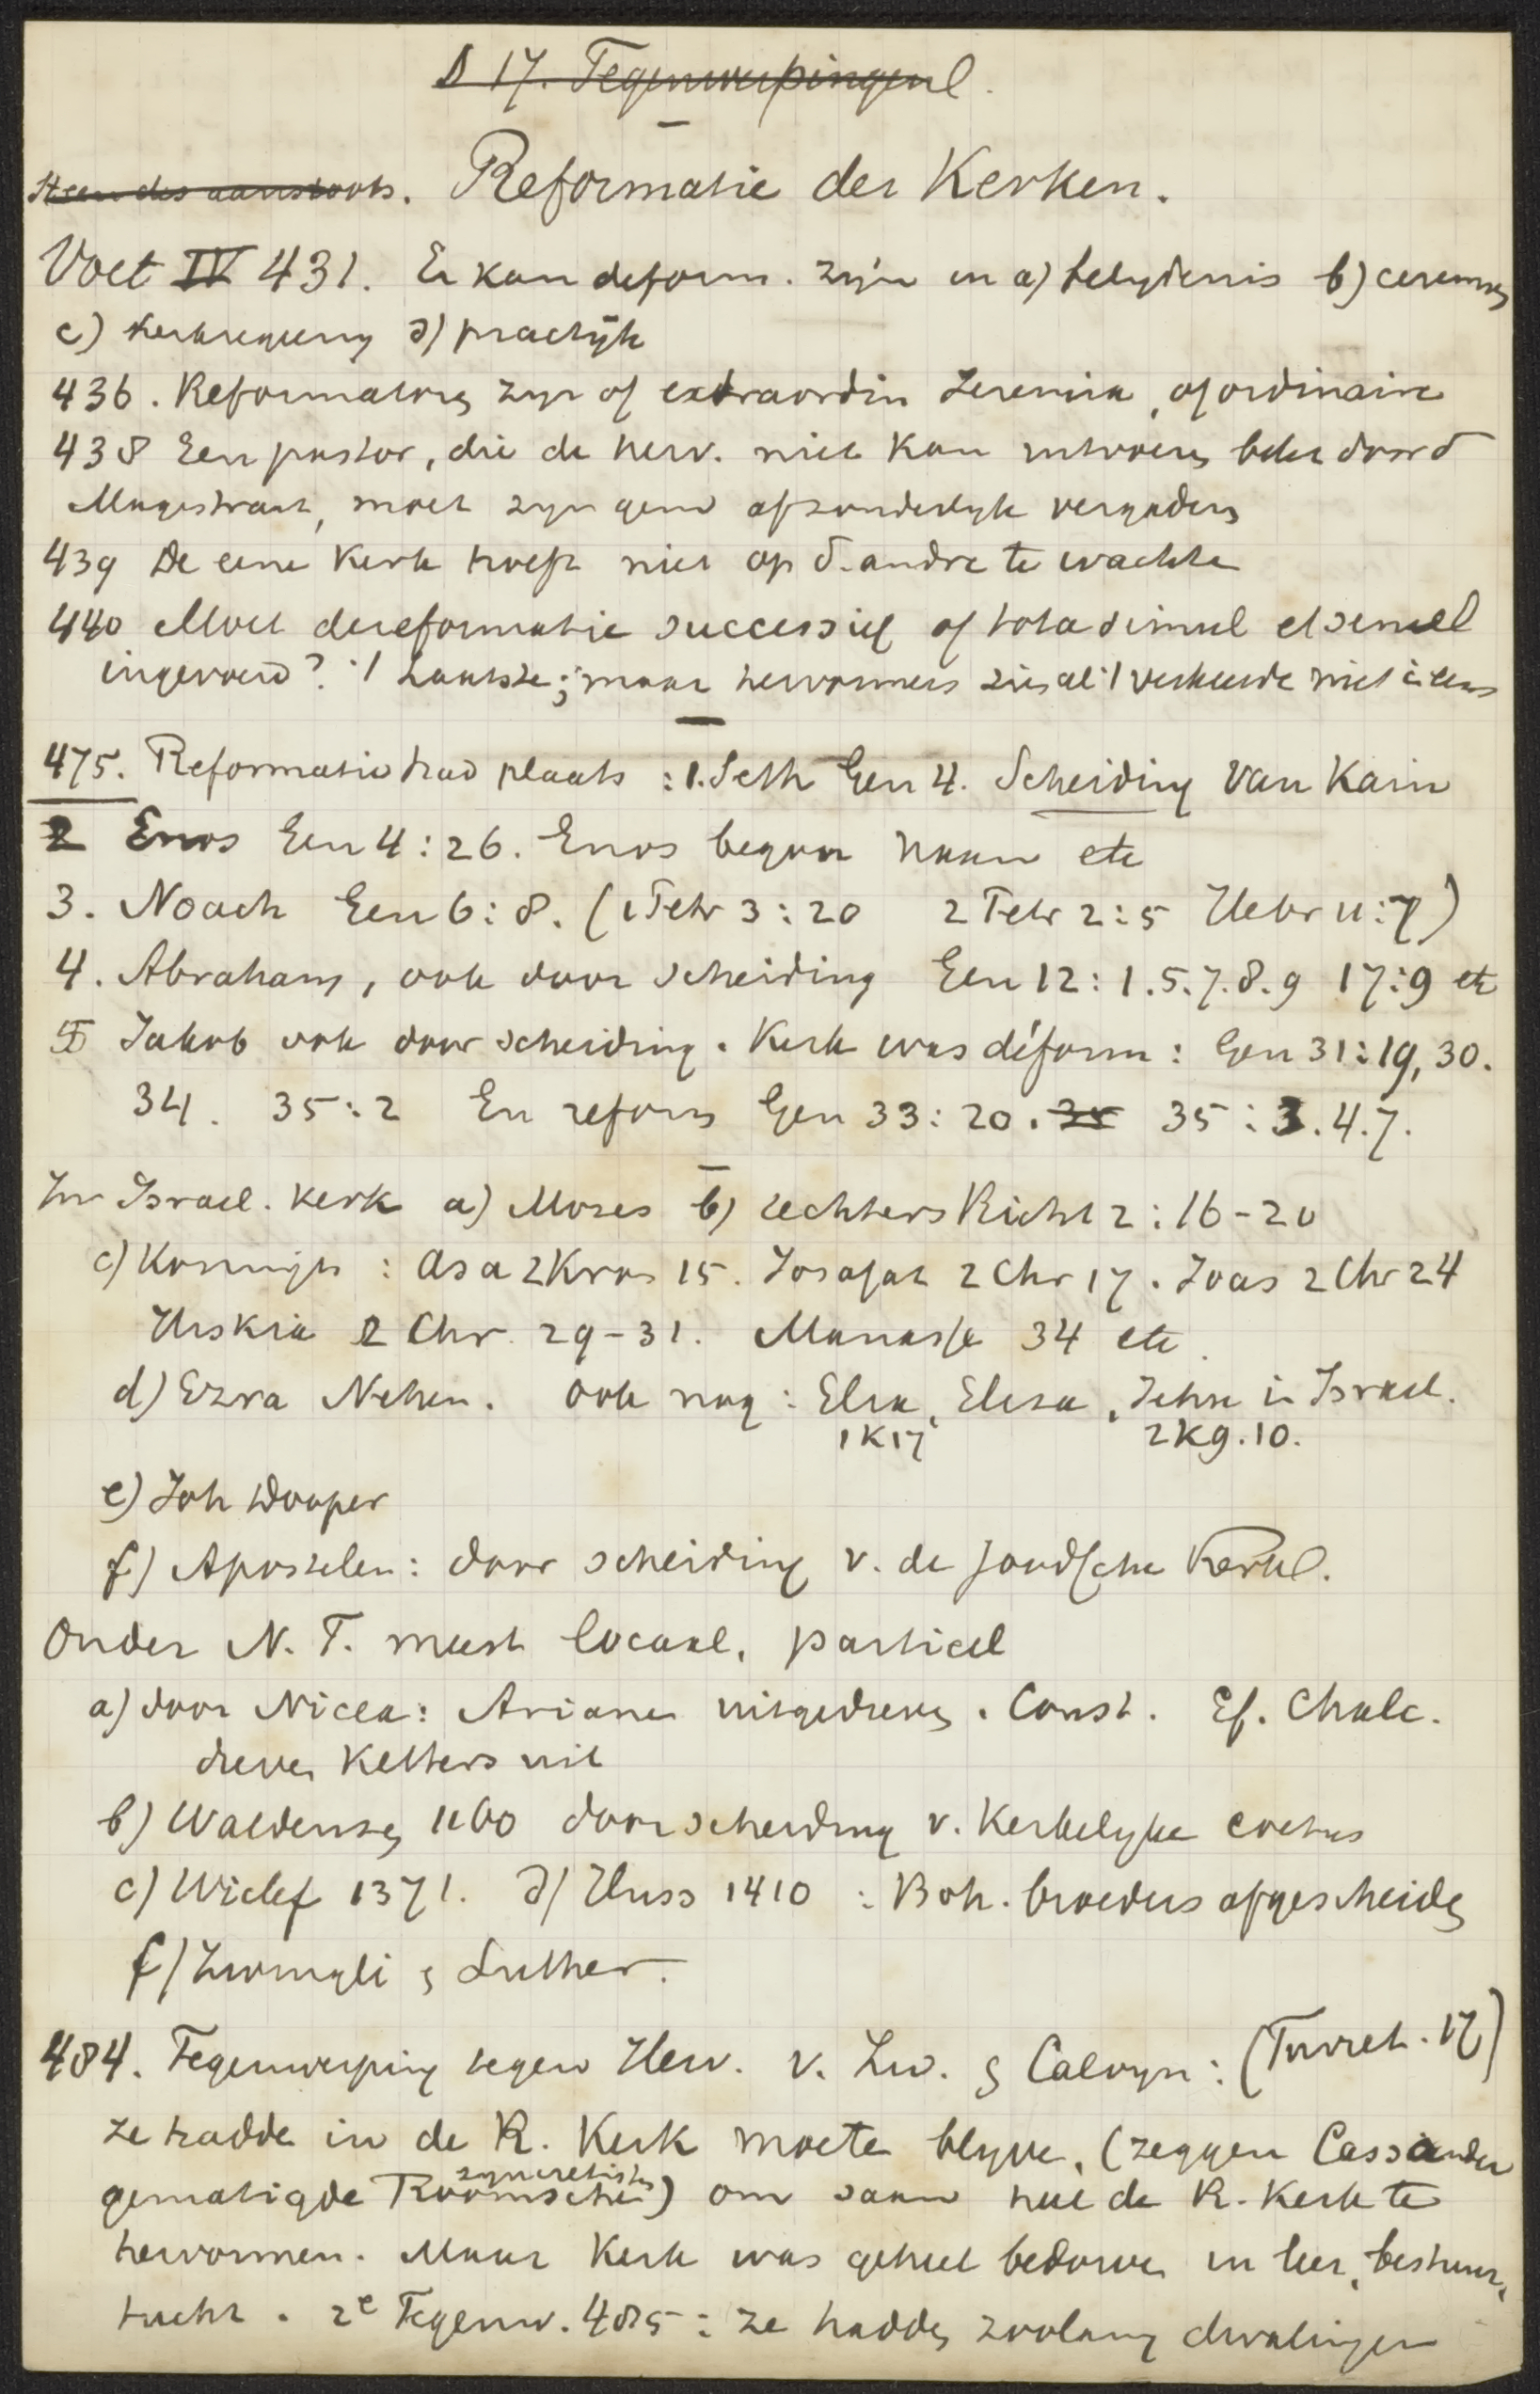 § 17. Tegenwerpingen.
Steen des aanstoots. Reformatie der Kerken.
Voet IV 431. Er kan deform. zijn in a) belydenis b) ceremon
c) kerkregering d) practijk
436. Reformators zyn of extraordin Jeremia, of ordinaire
438 Een pastor, die de herv. niet kan invoeren door d
Magistraat, moet zyn gem afzonderlyk vergadern
439 De eene Kerk hoeft niet op d. andre te wachte
440 Moet de reformatie successief of tota simul et semel
ingevoerd? 't Laatste; maar hervormers zien al 't verkeerde niet ineens
475. Reformatie had plaats : 1. Seth Gen 4. Scheiding van Kain
2 Enos Gen 4 : 26. Enos begon naam etc
3. Noach Gen 6 : 8. (1 Petr 3 : 20 2 Petr 2 : 5 Hebr 11 : 7)
4. Abraham, ook door scheiding Gen 12 : 1. 5. 7. 8. 9 17 : 9 etc
5 Jakob ook door scheiding. Kerk was déform : Gen 31 : 19, 30.
34. 35 : 2 En reform Gen 33 : 20. 35 35 : 3. 4. 7.
In Israel. Kerk a) Mozes b) rechters Richt 2 : 16-20
c) Koningen : Asa 2 Kron 15. Josafat 2 Chr 17. Joas 2 Chr 24
Hiskia 2 Chr. 29-31. Manasse 34 etc.
d) Ezra Nehem. ook nog : Elia, Elisa, Jehu in Israel.
1 K 17 2 K 9. 10.
e) Joh Dooper
f) Apostelen : door scheiding v. de Joodsche Kerk.
Onder N. T. meest locaal, particul
a) door Nicea : Arianen uitgedreven. Const. Ef. Chalc.
dreven Ketters uit
b) Waldensen 1160 door scheiding v. Kerkelyke coetus
c) Wiclef 1371. d) Huss 1410 : Boh. broeders afgescheiden
f) Zwingli & Luther.
484. Tegenwerping tegen Herv. v. Zw. & Calvyn : (Turret. 17)
ze hadde in de R. Kerk moete blyve, (zeggen Cassander
syncretisten
gematigde Roomschen) om saam heel de R. Kerk te
hervormen. Maar Kerk was geheel bedorven in leer, bestuur,
tucht. 2e Tegenw. 485 : ze hadden zoolang dwalingen